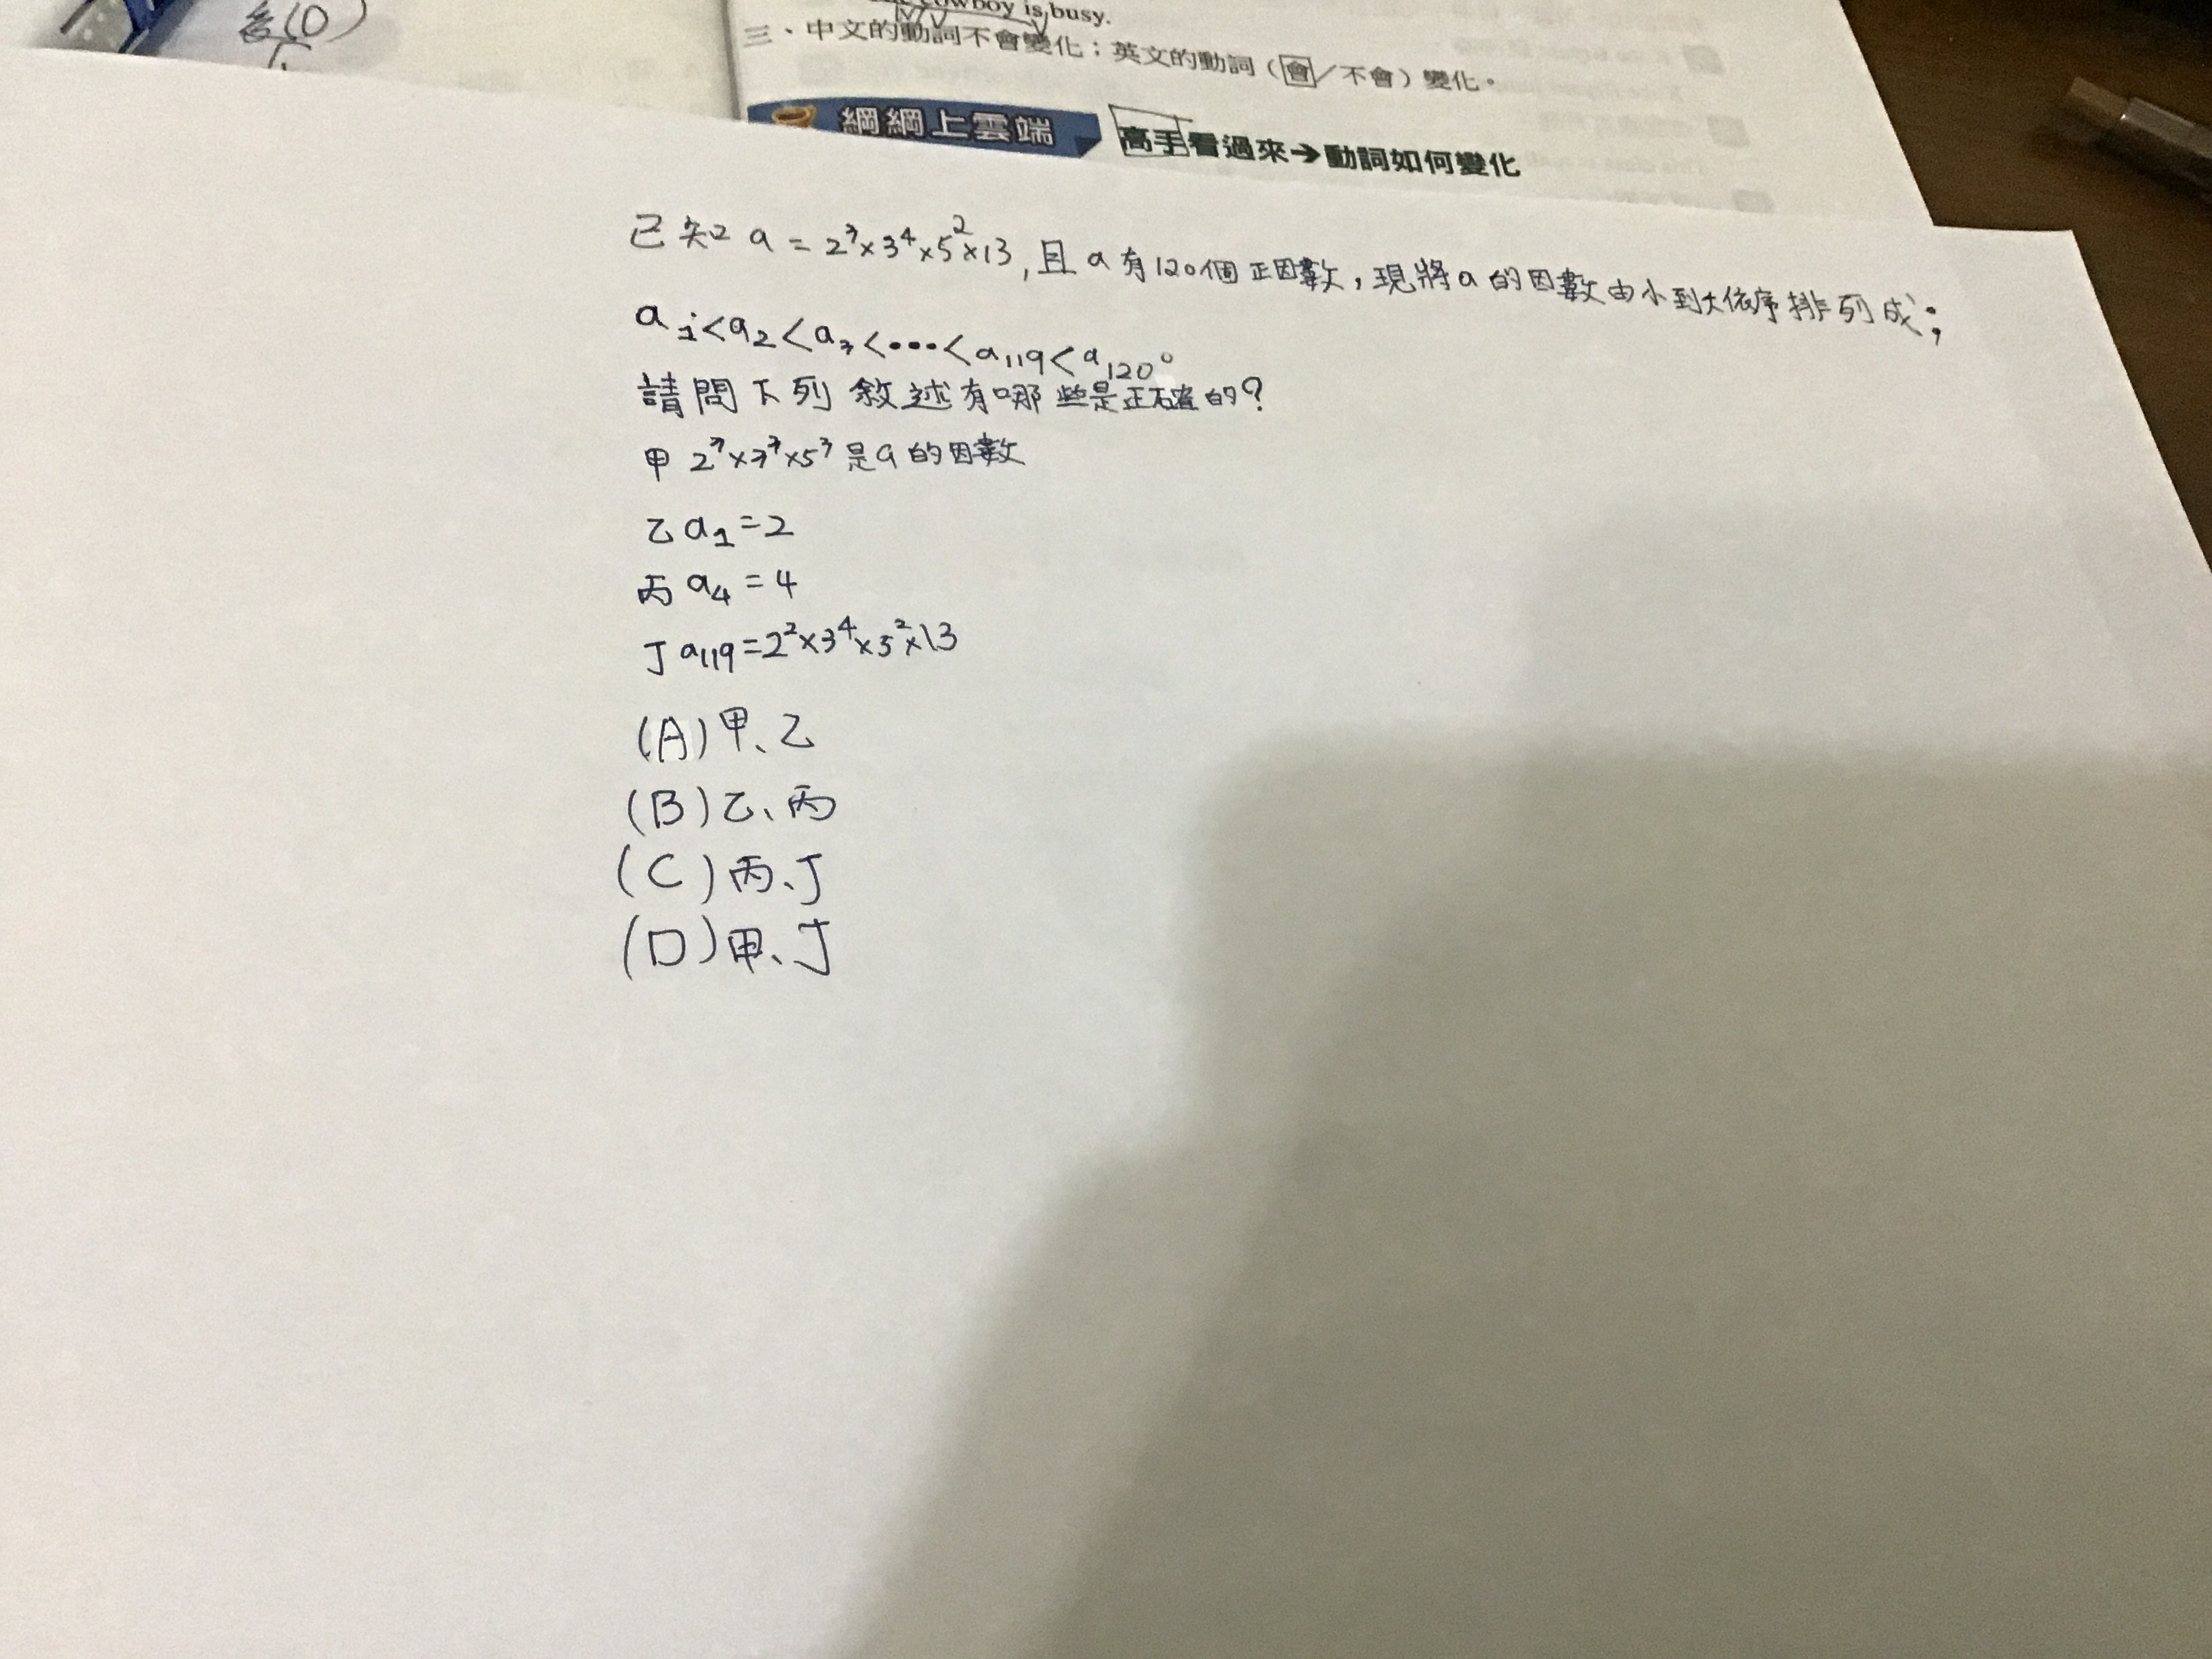 cowboy is busy.
三、中文的動詞不會變化；英文的動詞（會／不會）變化。
綱綱上雲端 高手看過來→動詞如何變化
已知 a = 2³×3⁴×5²×13, 且 a 有120個正因數，現將a的因數由小到大依序排列成；
a₁<a₂<a₃<•••<a₁₁₉<a₁₂₀。
請問下列敘述有哪些是正確的?
甲 2³×3³×5³是a的因數
乙 a₁=2
丙 a₄=4
丁 a₁₁₉=2²×3⁴×5²×13
(A)甲、乙
(B)乙、丙
(C)丙、丁
(D)甲、丁